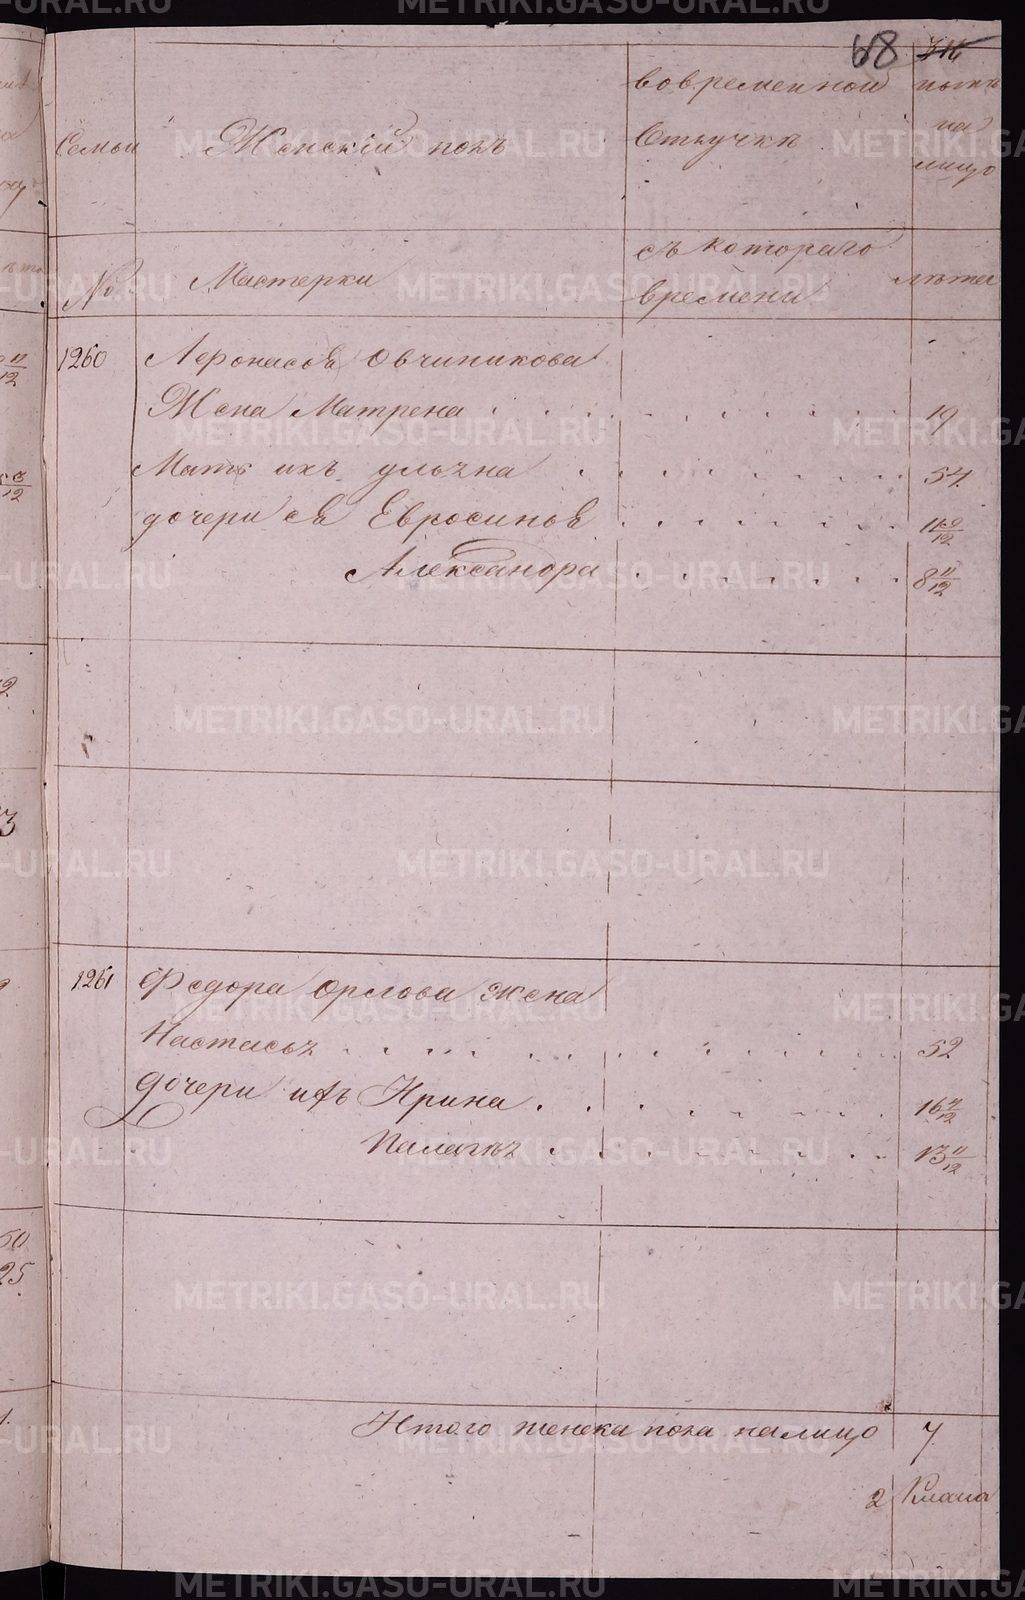 68
Семьи Женскій полъ вовременной Отлучкѣ нынѣ на лицо
№ Мастерки съ котораго времени лѣта
1260 Афонасья Овчинникова
Жена Матрена 19
Мать ихъ Ульяна 54
дочери ея Евросинья 11 9/12
Александра 8 11/12
1261 Федора Орлова жена
Настасья 52
Дочери ихъ Ирина 16
Палагѣя 13 11/12
Итого женска пола налицо 7
2
METRIKI.GASO-URAL.RU